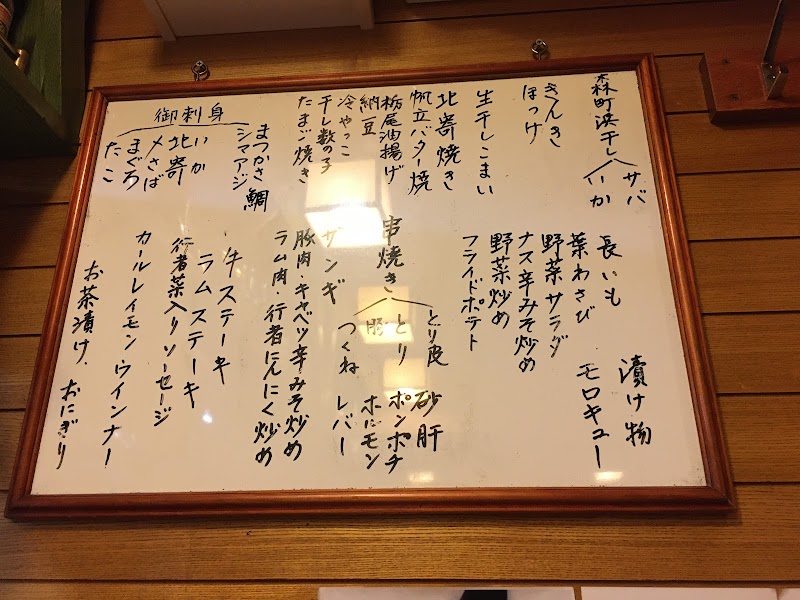 森町浜干し
サバ
いか
きんき
ほっけ
生干しこまい
北寄焼き
帆立バター焼
栃尾油揚げ
納豆
冷やっこ
干し数の子
たまご焼き
御刺身
まつかさ鯛
シマアジ
いか
北寄
〆さば
まぐろ
たこ
漬け物
モロキュー
長いも
葉わさび
野菜サラダ
ナス辛みそ炒め
野菜炒め
フライドポテト
串焼き
とり皮
とり
豚
つくね
砂肝
ポンポチ
ホルモン
レバー
ザンギ
豚肉・キャベツ辛みそ炒め
ラム肉・行者にんにく炒め
牛ステーキ
ラムステーキ
行者菜入りソーセージ
カールレイモンウインナー
お茶漬け、おにぎり